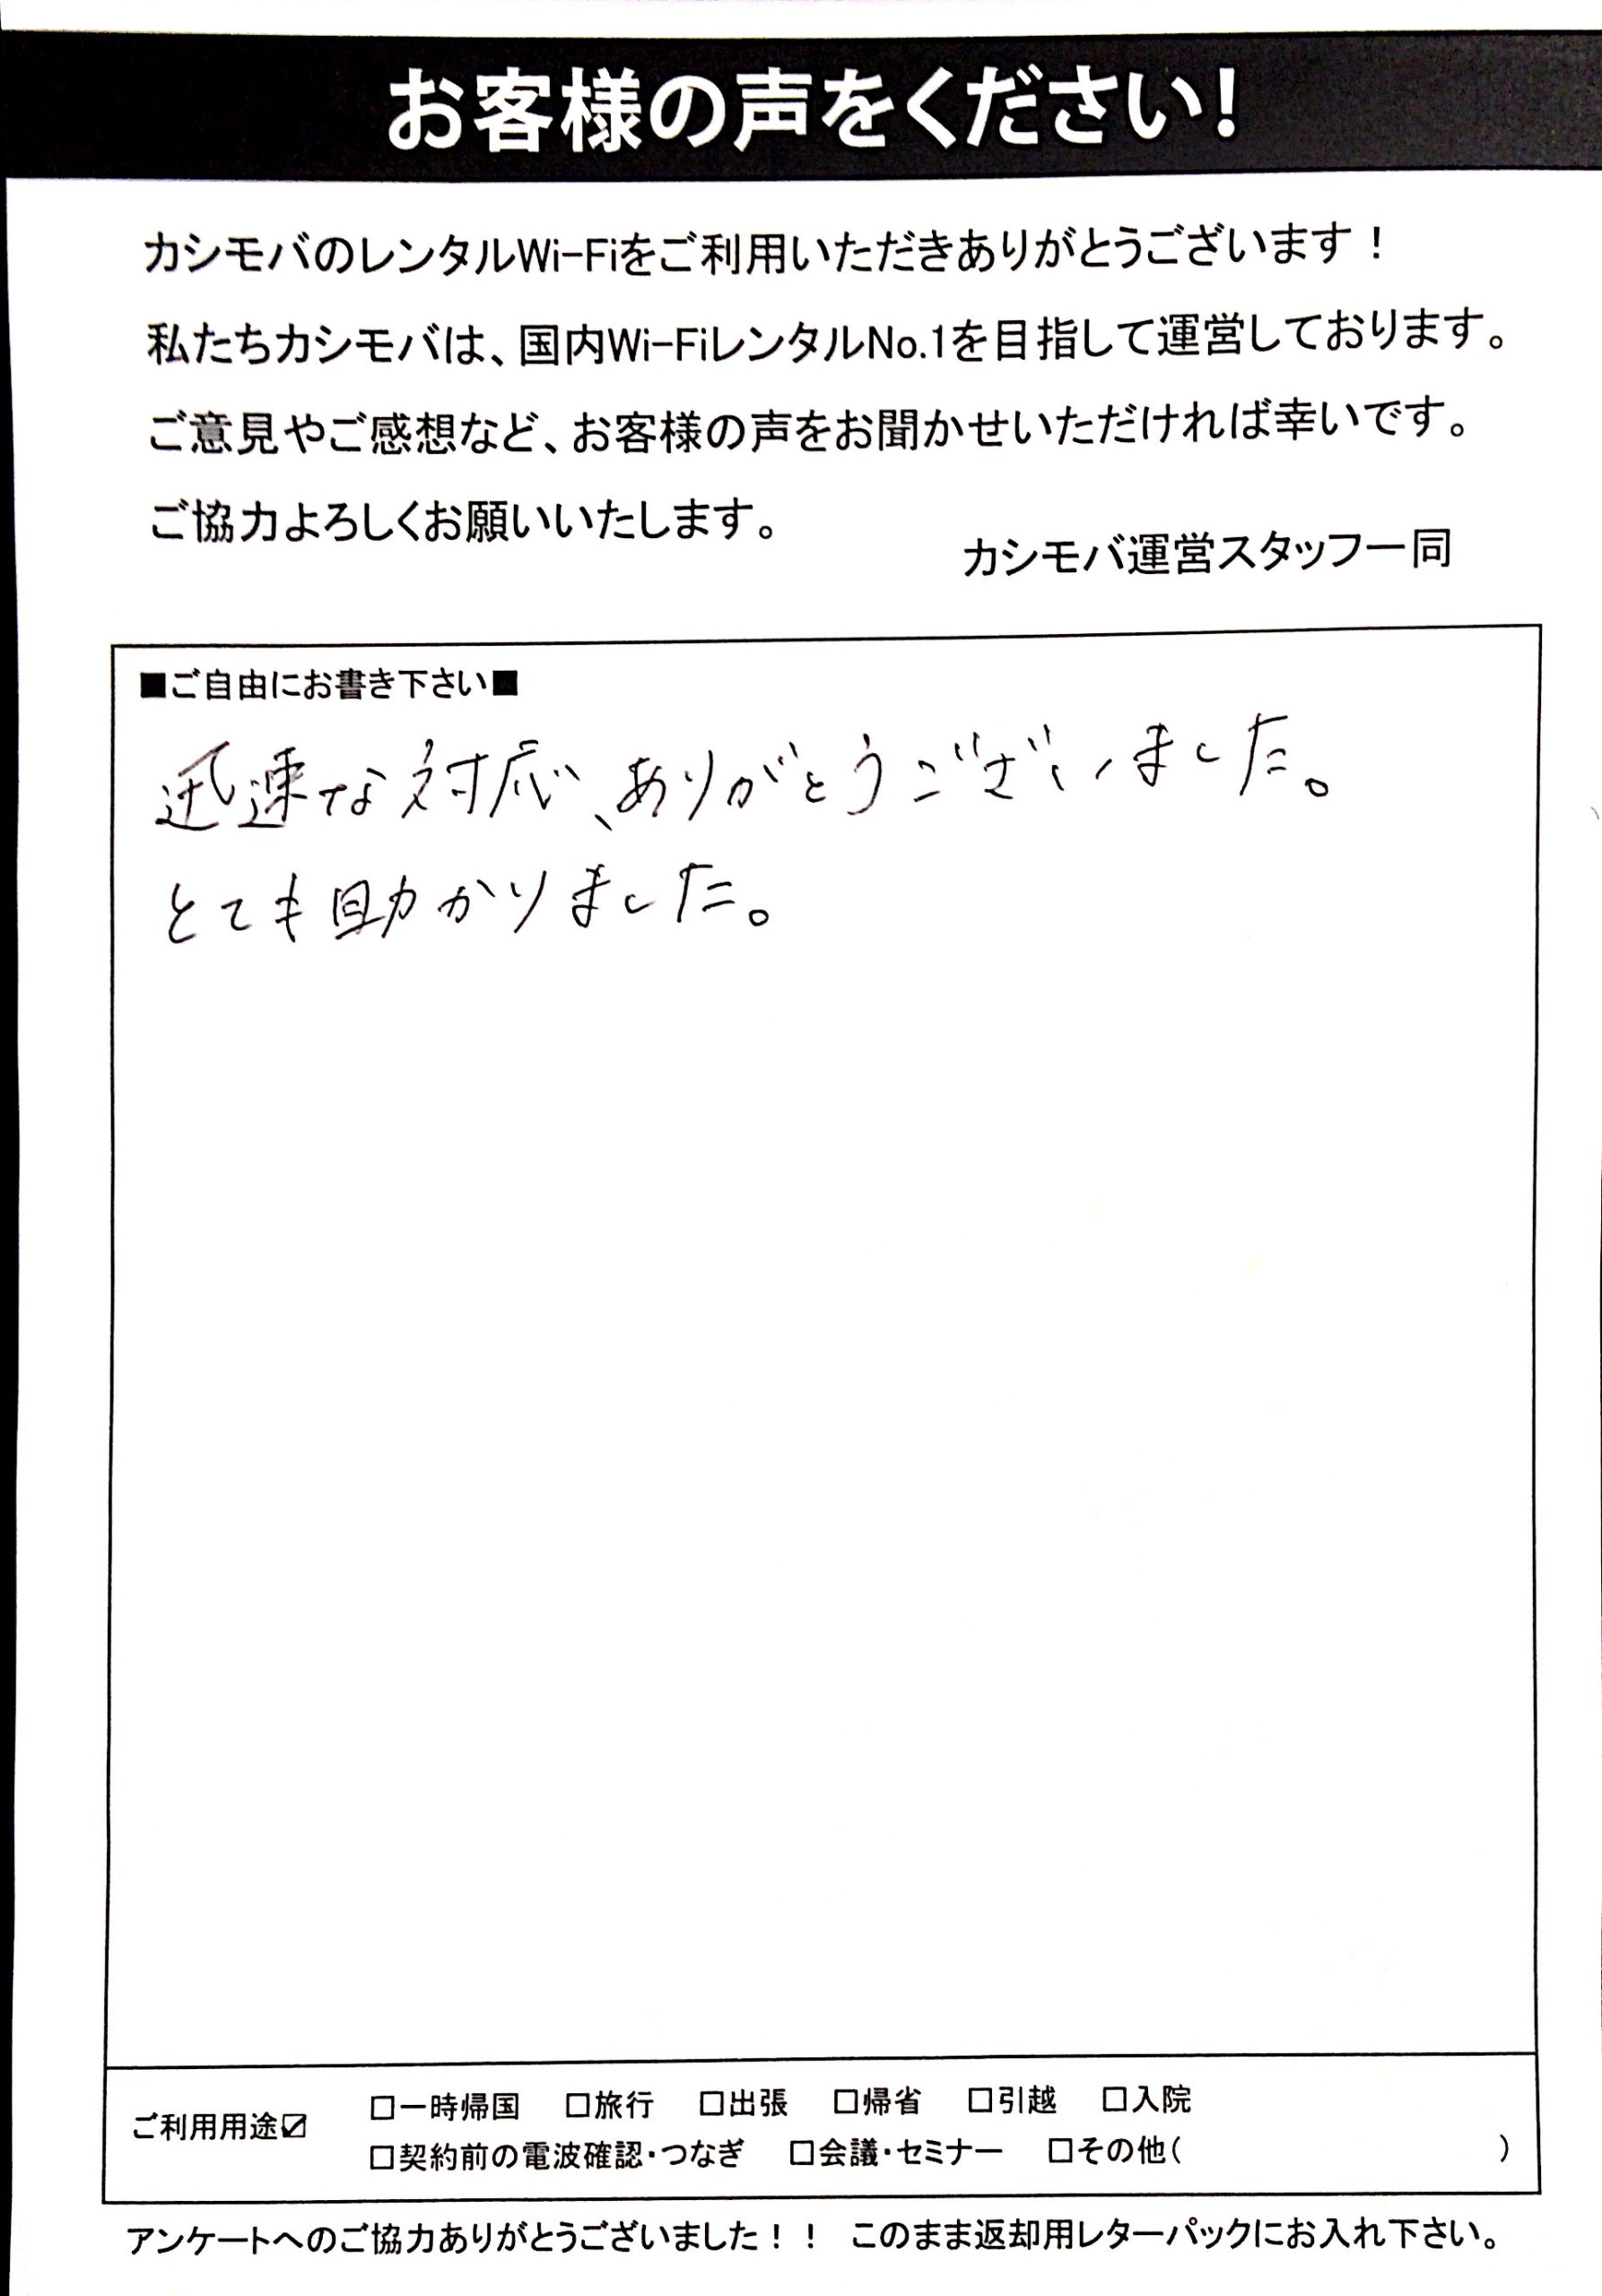 お客様の声をください!
カシモバのレンタルWi-Fiをご利用いただきありがとうございます！
私たちカシモバは、国内Wi-FiレンタルNo.1を目指して運営しております。
ご意見やご感想など、お客様の声をお聞かせいただければ幸いです。
ご協力よろしくお願いいたします。
カシモバ運営スタッフ一同
■ご自由にお書き下さい■
迅速な対応、ありがとうございました。
とても助かりました。
ご利用用途☑
□一時帰国 □旅行 □出張 □帰省 □引越 □入院
□契約前の電波確認・つなぎ □会議・セミナー □その他( )
アンケートへのご協力ありがとうございました！！ このまま返却用レターパックにお入れ下さい。